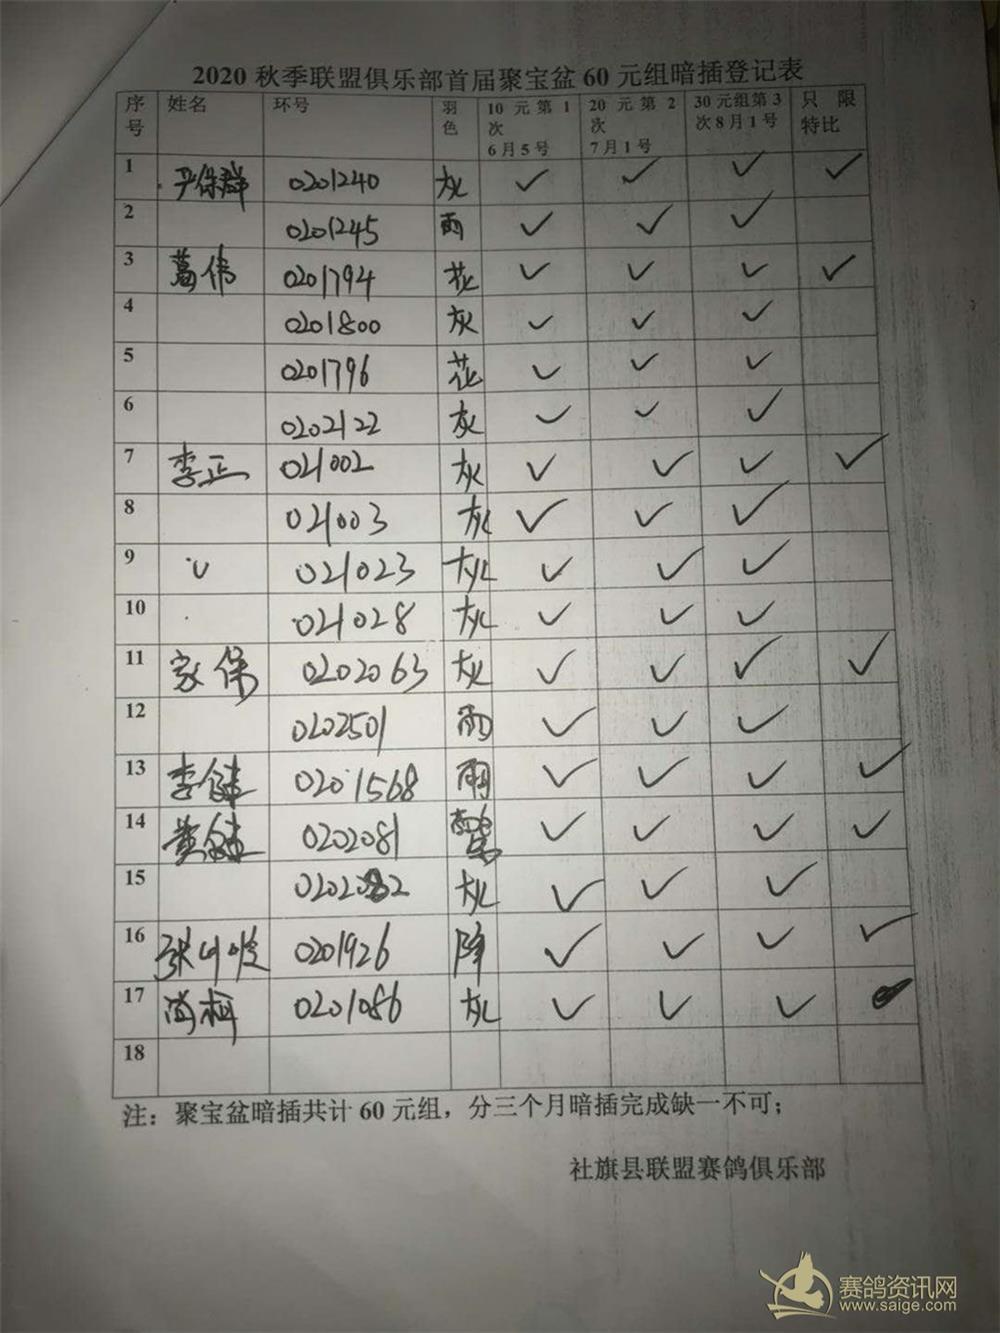 2020 秋季联盟俱乐部首届聚宝盆 60 元组暗插登记表
序号 姓名 环号 羽色 10 元第1次 6月5号 20 元第2次 7月1号 30元组第3次8月1号 只限特比
1 尹保群 0201240 灰 ✓ ✓ ✓ ✓
2 0201245 雨 ✓ ✓ ✓
3 葛伟 0201794 花 ✓ ✓ ✓ ✓
4 0201800 灰 ✓ ✓ ✓
5 0201796 花 ✓ ✓ ✓
6 0202122 灰 ✓ ✓ ✓
7 李正 021002 灰 ✓ ✓ ✓ ✓
8 021003 灰 ✓ ✓ ✓
9 021023 灰 ✓ ✓ ✓
10 021028 灰 ✓ ✓ ✓
11 家保 0202063 灰 ✓ ✓ ✓ ✓
12 0202501 雨 ✓ ✓ ✓
13 李健 0201568 雨 ✓ ✓ ✓ ✓
14 黄健 0202081 ✓ ✓ ✓ ✓
15 0202082 灰 ✓ ✓ ✓
16 0201926 降 ✓ ✓ ✓ ✓
17 尚柯 0201086 灰 ✓ ✓ ✓
18
注：聚宝盆暗插共计 60 元组，分三个月暗插完成缺一不可；
社旗县联盟赛鸽俱乐部
赛鸽资讯网
www.saige.com